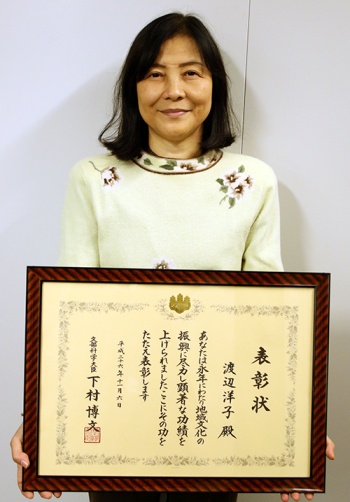 表彰状
渡辺洋子 殿
あなたは永年にわたり地域文化の
振興に尽力し顕著な功績を
上げられましたここにその功を
たたえ表彰します
平成二十六年十一月六日
文部科学大臣 下村博文